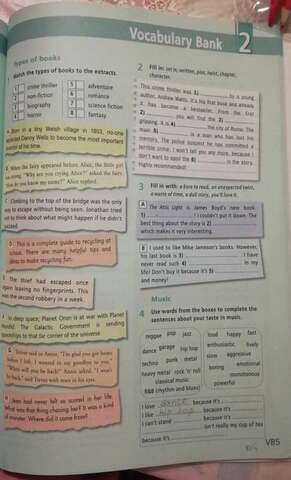 Vocabulary Bank 2
Types of books
1 Match the types of books to the extracts.
1 crime thriller
2 non-fiction
3 biography
4 horror
5 adventure
6 romance
7 science fiction
8 fantasy
A Born in a tiny Welsh village in 1893, no-one
expected Danny Wells to become the most important
of his time.
B When the fairy appeared before Alice, the little girl
was crying. "Why are you crying Alice?" asked the fairy.
"How do you know my name?" Alice sighed.
C Climbing to the top of the bridge was the only
way to escape without being seen. Jonathan tried
not to think about what might happen if he didn't
succeed.
D This is a complete guide to recycling at
school. There are many helpful tips and
ideas to make recycling fun.
E The thief had escaped once
again leaving no fingerprints. This
was the second robbery in a week.
F In deep space, Planet Orion is at war with Planet
The Galactic Government is sending
starships to that far corner of the universe.
G Trevor said to Annie, "I'm glad you got home
before I left. I wanted to say goodbye to you."
"When will you be back?" Annie asked. "I won't
be back," said Trevor with tears in his eyes.
H Jean had never felt so scared in her life.
What was that thing chasing her? It was a kind
of monster. Where did it come from?
2 Fill in: set in, written, plot, twist, chapter,
character.
The police thriller, 1) by a young
author, Andrew Watts. It's his first book and already
it has become a bestseller. From the first
2) you will find the 3)
gripping. It is 4) the city of Rome. The
main 5) is a man who has lost his
memory. The police suspect he has committed a
terrible crime. I won't tell you any more, because I
don't want to spoil the 6) in the story.
Highly recommended!
3 Fill in with: a bore to read, an unexpected twist,
a waste of time, a dull story, you'll love it.
A The Attic Light is James Boyd's new book.
1) ! I couldn't put it down. The
best thing about the story is 2)
which makes it very interesting.
B I used to like Mike Jameson's books. However,
his last book is 3) . I have
never read such 4) in my
life! Don't buy it because it's 5)
and money!
Music
4 Use words from the boxes to complete the
sentences about your taste in music.
reggae pop jazz
dance garage hip hop
techno punk metal
heavy metal rock 'n' roll
classical music
R&B (rhythm and blues)
loud happy fast
enthusiastic lively
slow aggressive
boring emotional
monotonous
powerful
I love dance because it's
I like hip hop because it's
I can't stand because it's
isn't really my cup of tea
because it's
VB5